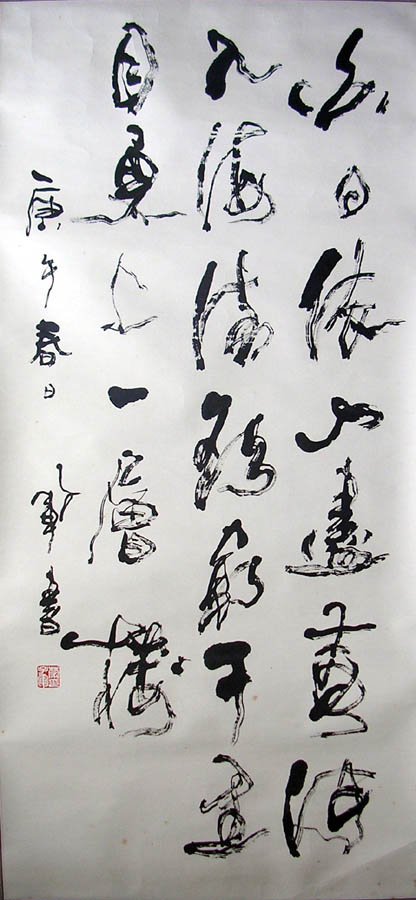 白日依山盡黃河
入海流欲窮千里
目更上一層樓
庚午春日 書